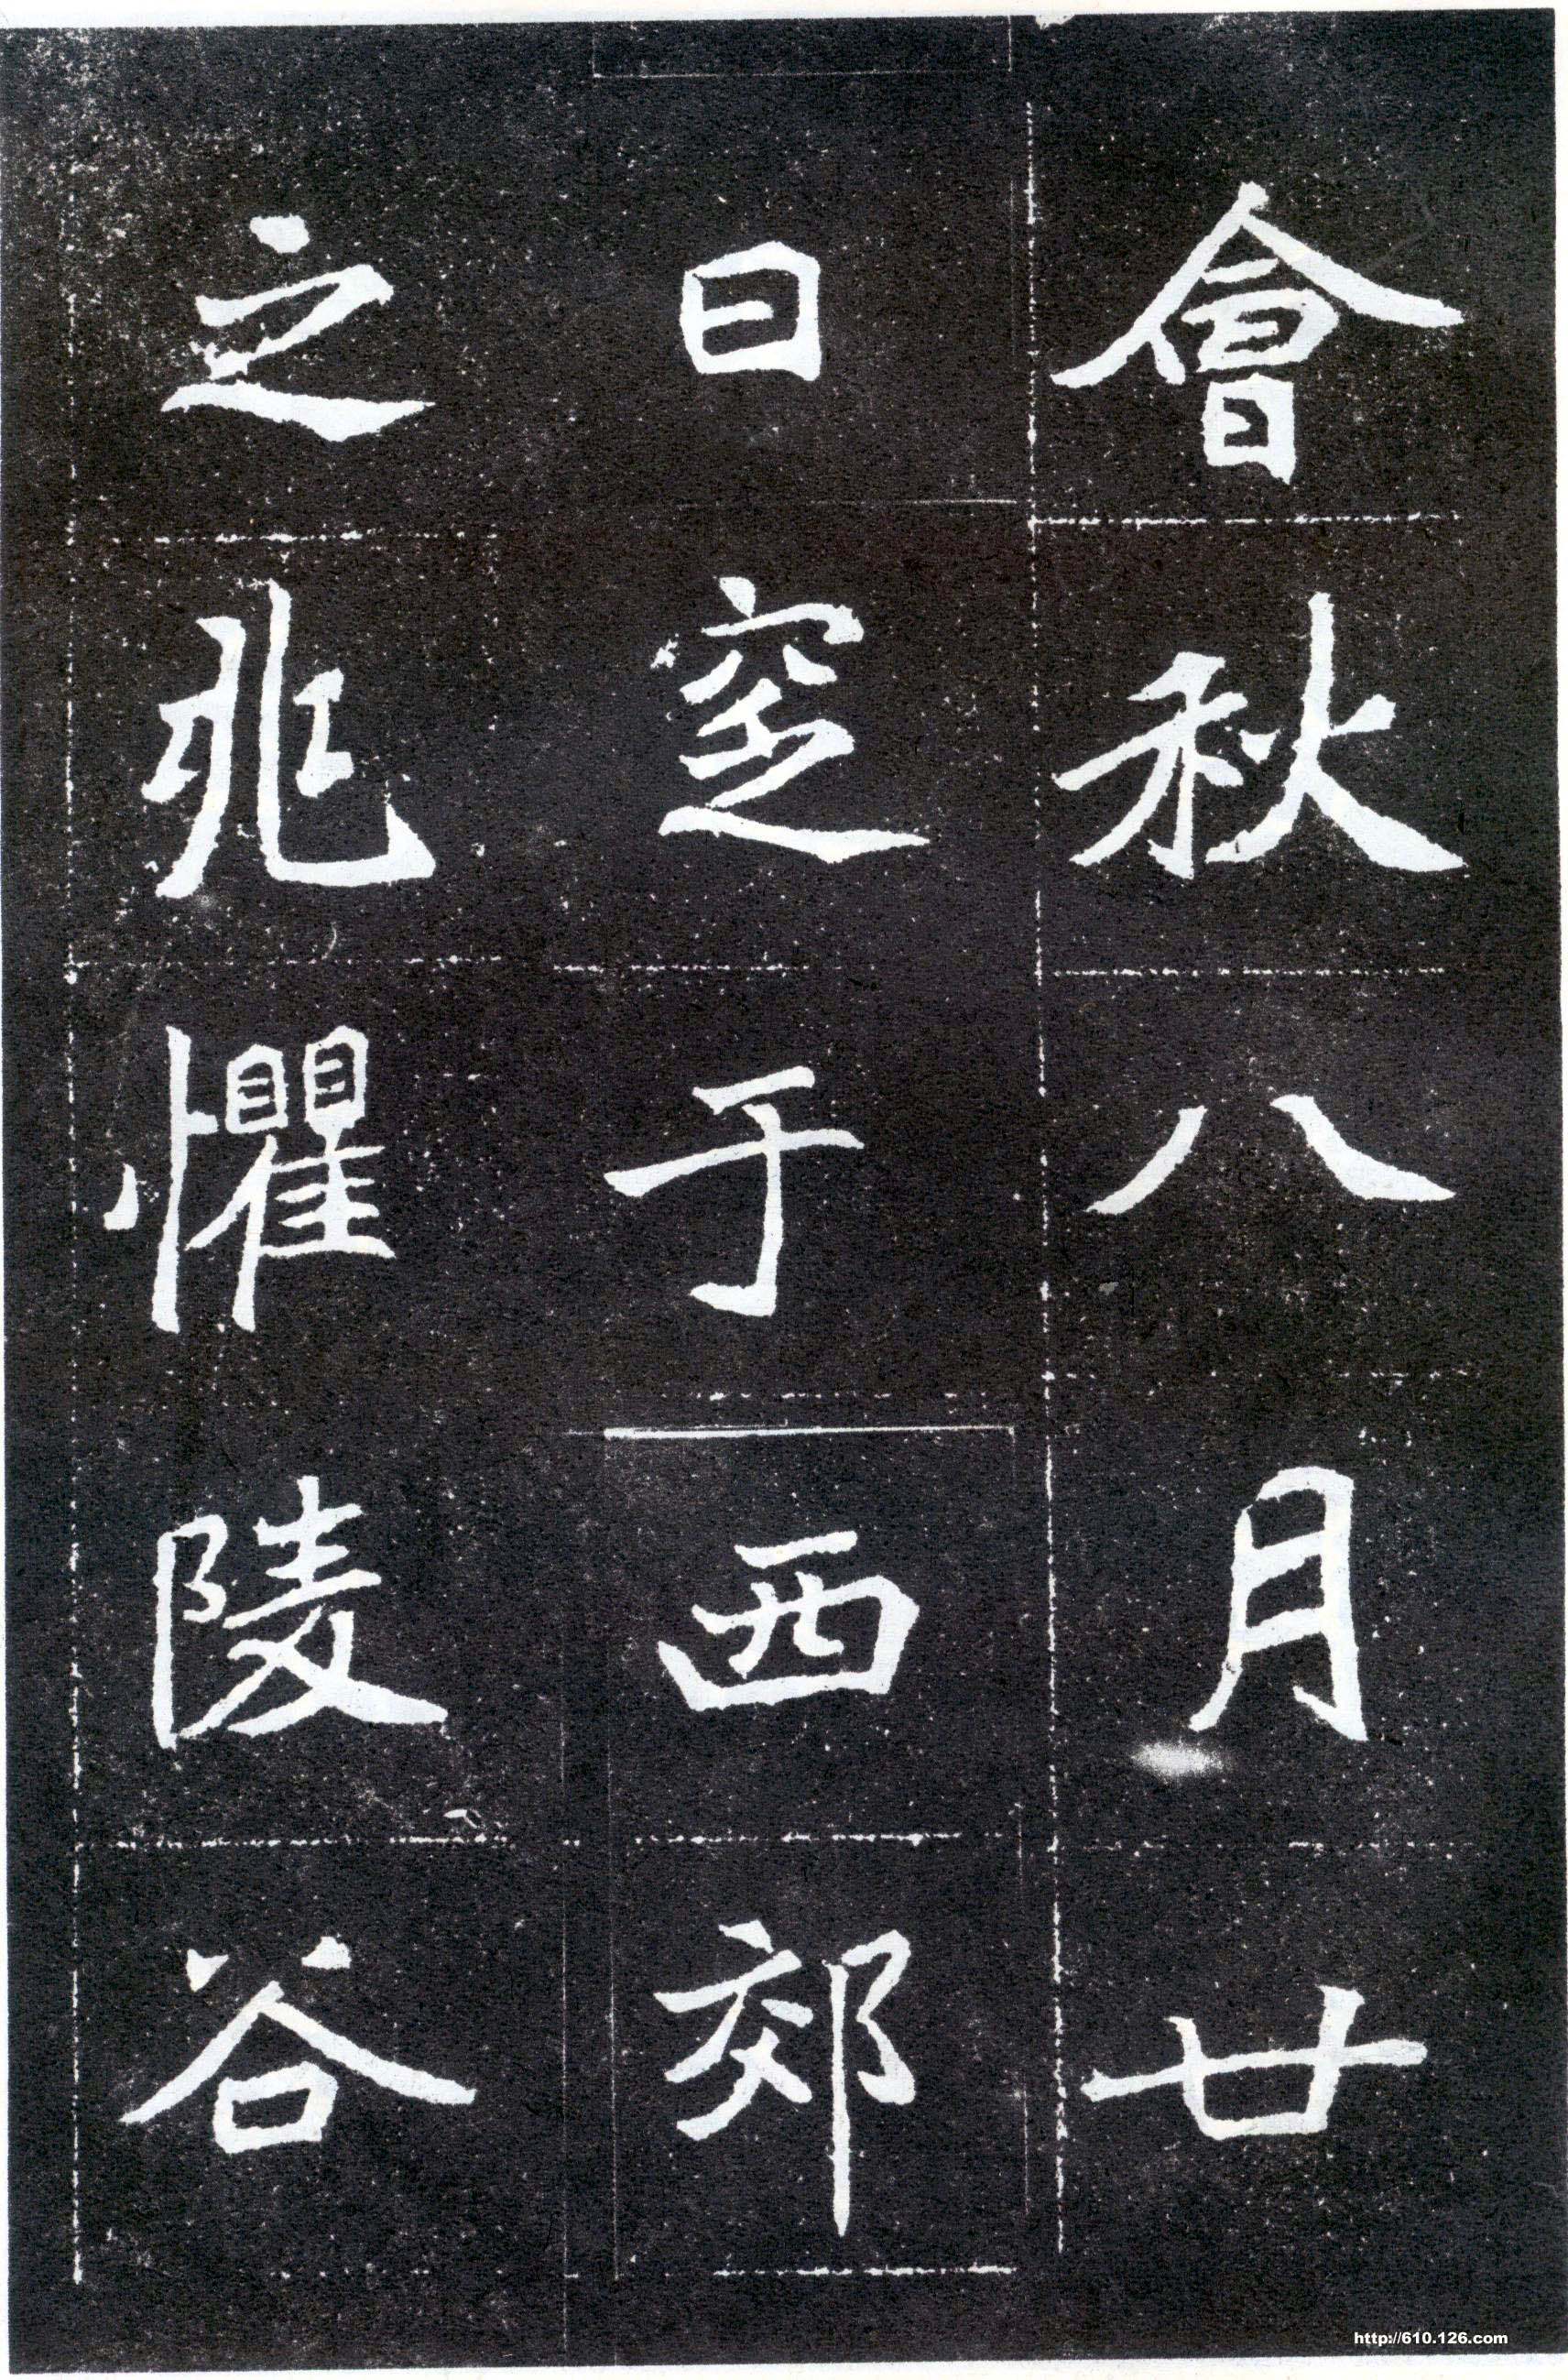 會秋八月廿
日窆于西郊
之兆懼陵谷
http://610.126.com